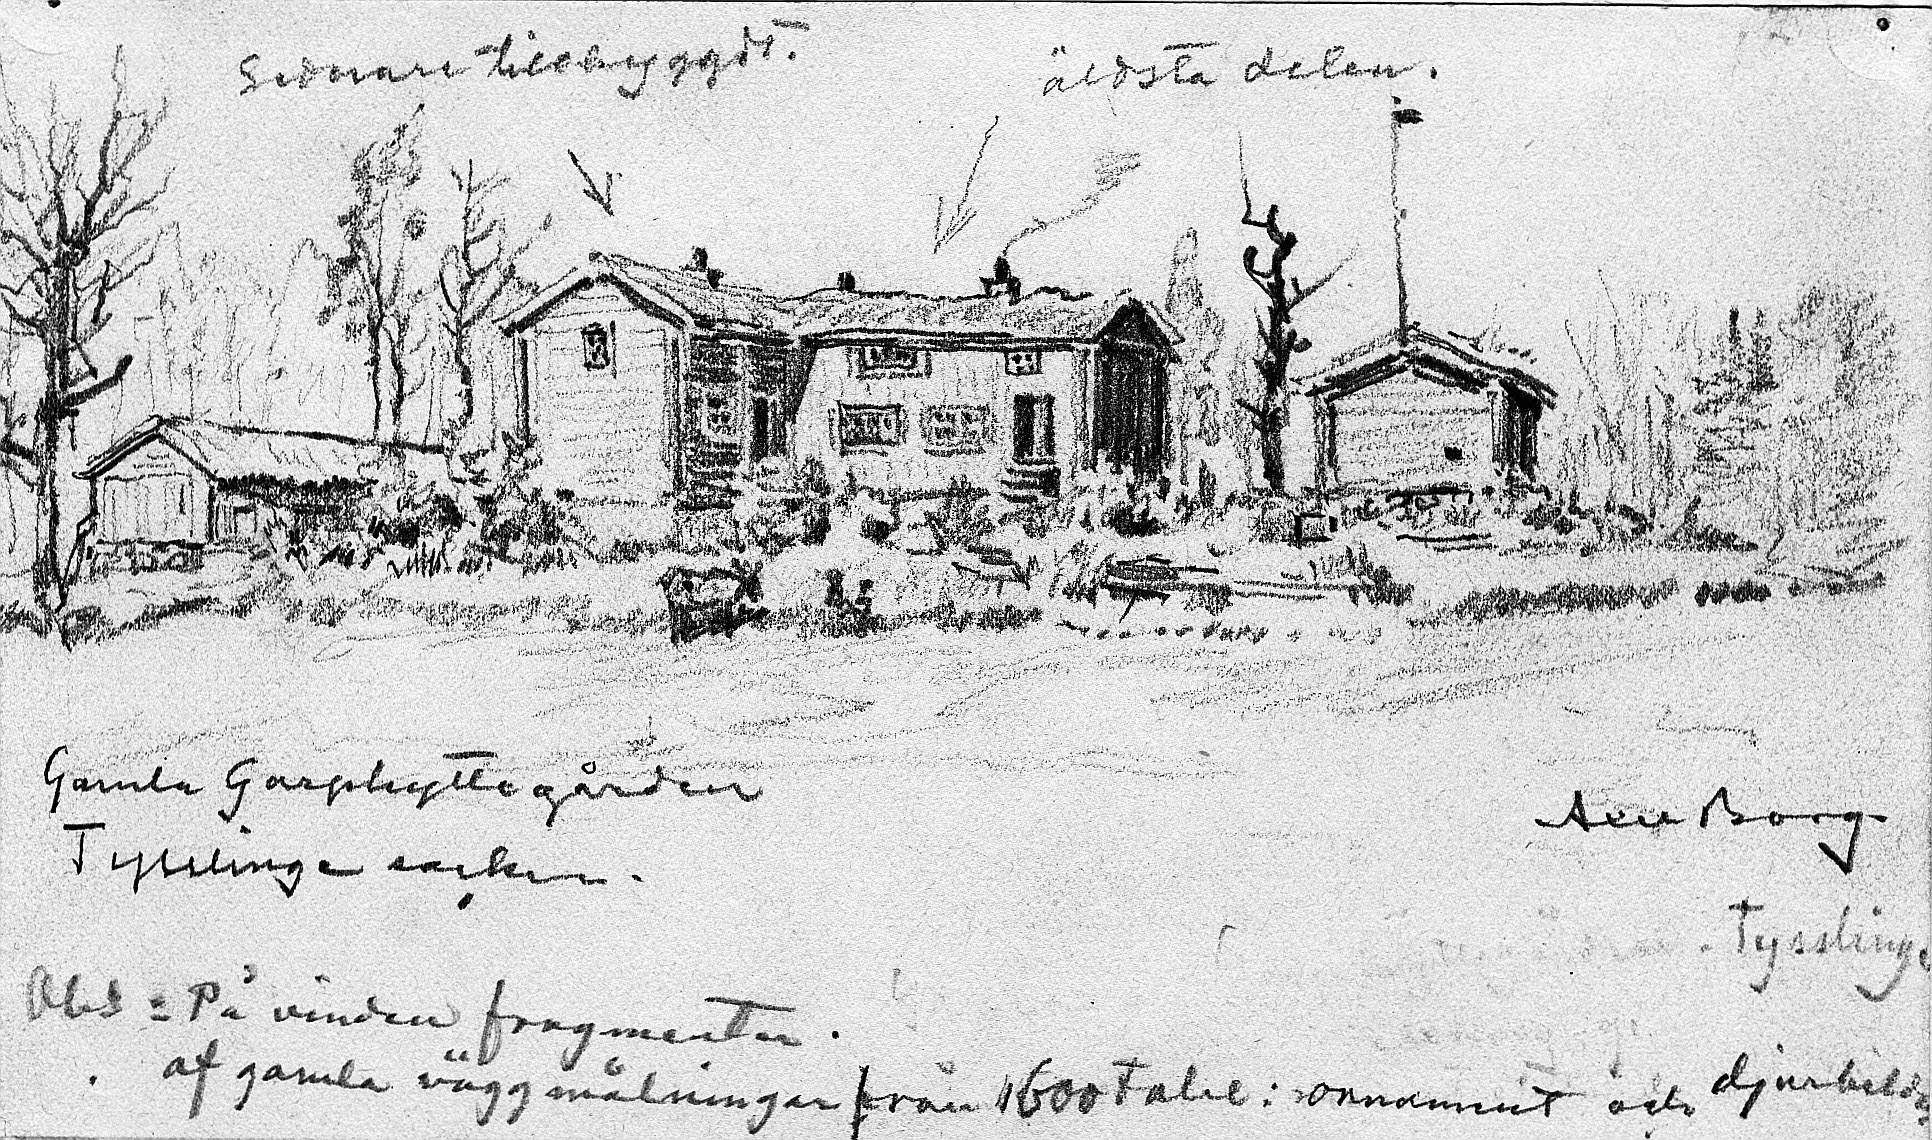 Sednare tillbyggdt.
äldsta delen.
Gamla Garphyttegården
Tysslinge socken.
Axel Borg
Tysslinge
Obs = På vinden fragmenter.
af gamla väggmålningar från 1600 talet: ornament och djurbilder